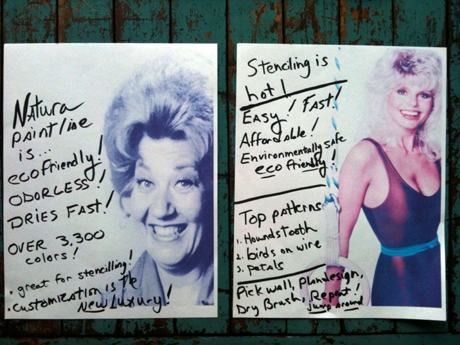 Natura
paint line
is...
ecofriendly!
ODORLESS!
DRIES FAST!
OVER 3,300
colors!
• great for stencilling!
• customization is the
New Luxury!
Stenciling is
hot!
Easy! Fast!
Affordable!
Environmentally safe
eco friendly!
Top patterns
1. Houndstooth
2. birds on wire
3. petals
Pick wall, Plan design,
Dry Brush, Repeat!
jump around